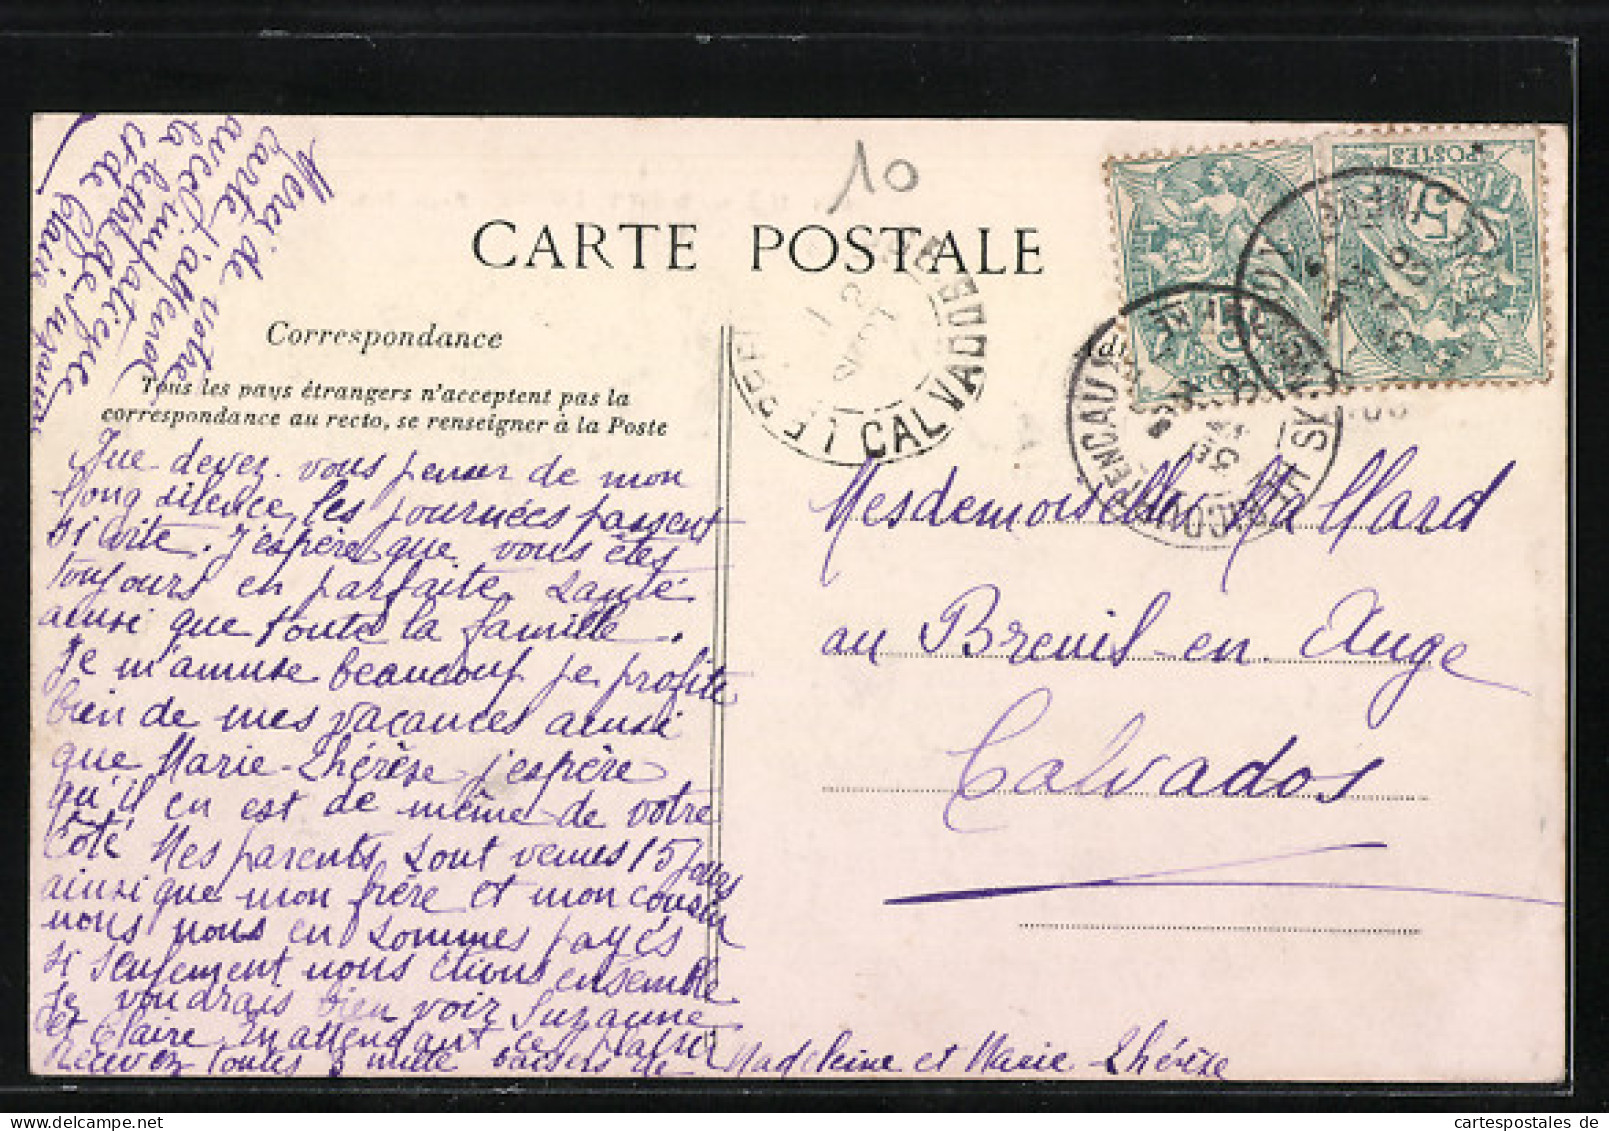 10
CARTE POSTALE
Correspondance
Tous les pays étrangers n'acceptent pas la
correspondance au recto, se renseigner à la Poste
Merci de votre
carte j'attends
avec d'impatience
la lettre de
et de Claire Suzanne
Que devez vous penser de mon
long silence, les journées passent
si vite. J'espère que vous êtes
toujours en parfaite santé
ainsi que toute la famille.
Je m'amuse beaucoup je profite
bien de mes vacances ainsi
que Marie-Thérèse j'espère
qu'il en est de même de votre
côté Mes parents sont venus 15 jours
ainsi que mon frère et mon cousin
nous nous en sommes payés
si seulement nous étions ensemble
Je voudrais bien voir Suzanne
et Claire En attendant ce plaisir
Recevez toutes 3 mille baisers de Madeleine et Marie-Thérèse
LE BREUIL
CALVADOS
12
SEPT
POSTES
5
5
Mesdemoiselles Mallard
au Breuil-en-Auge
Calvados
cartespostales de